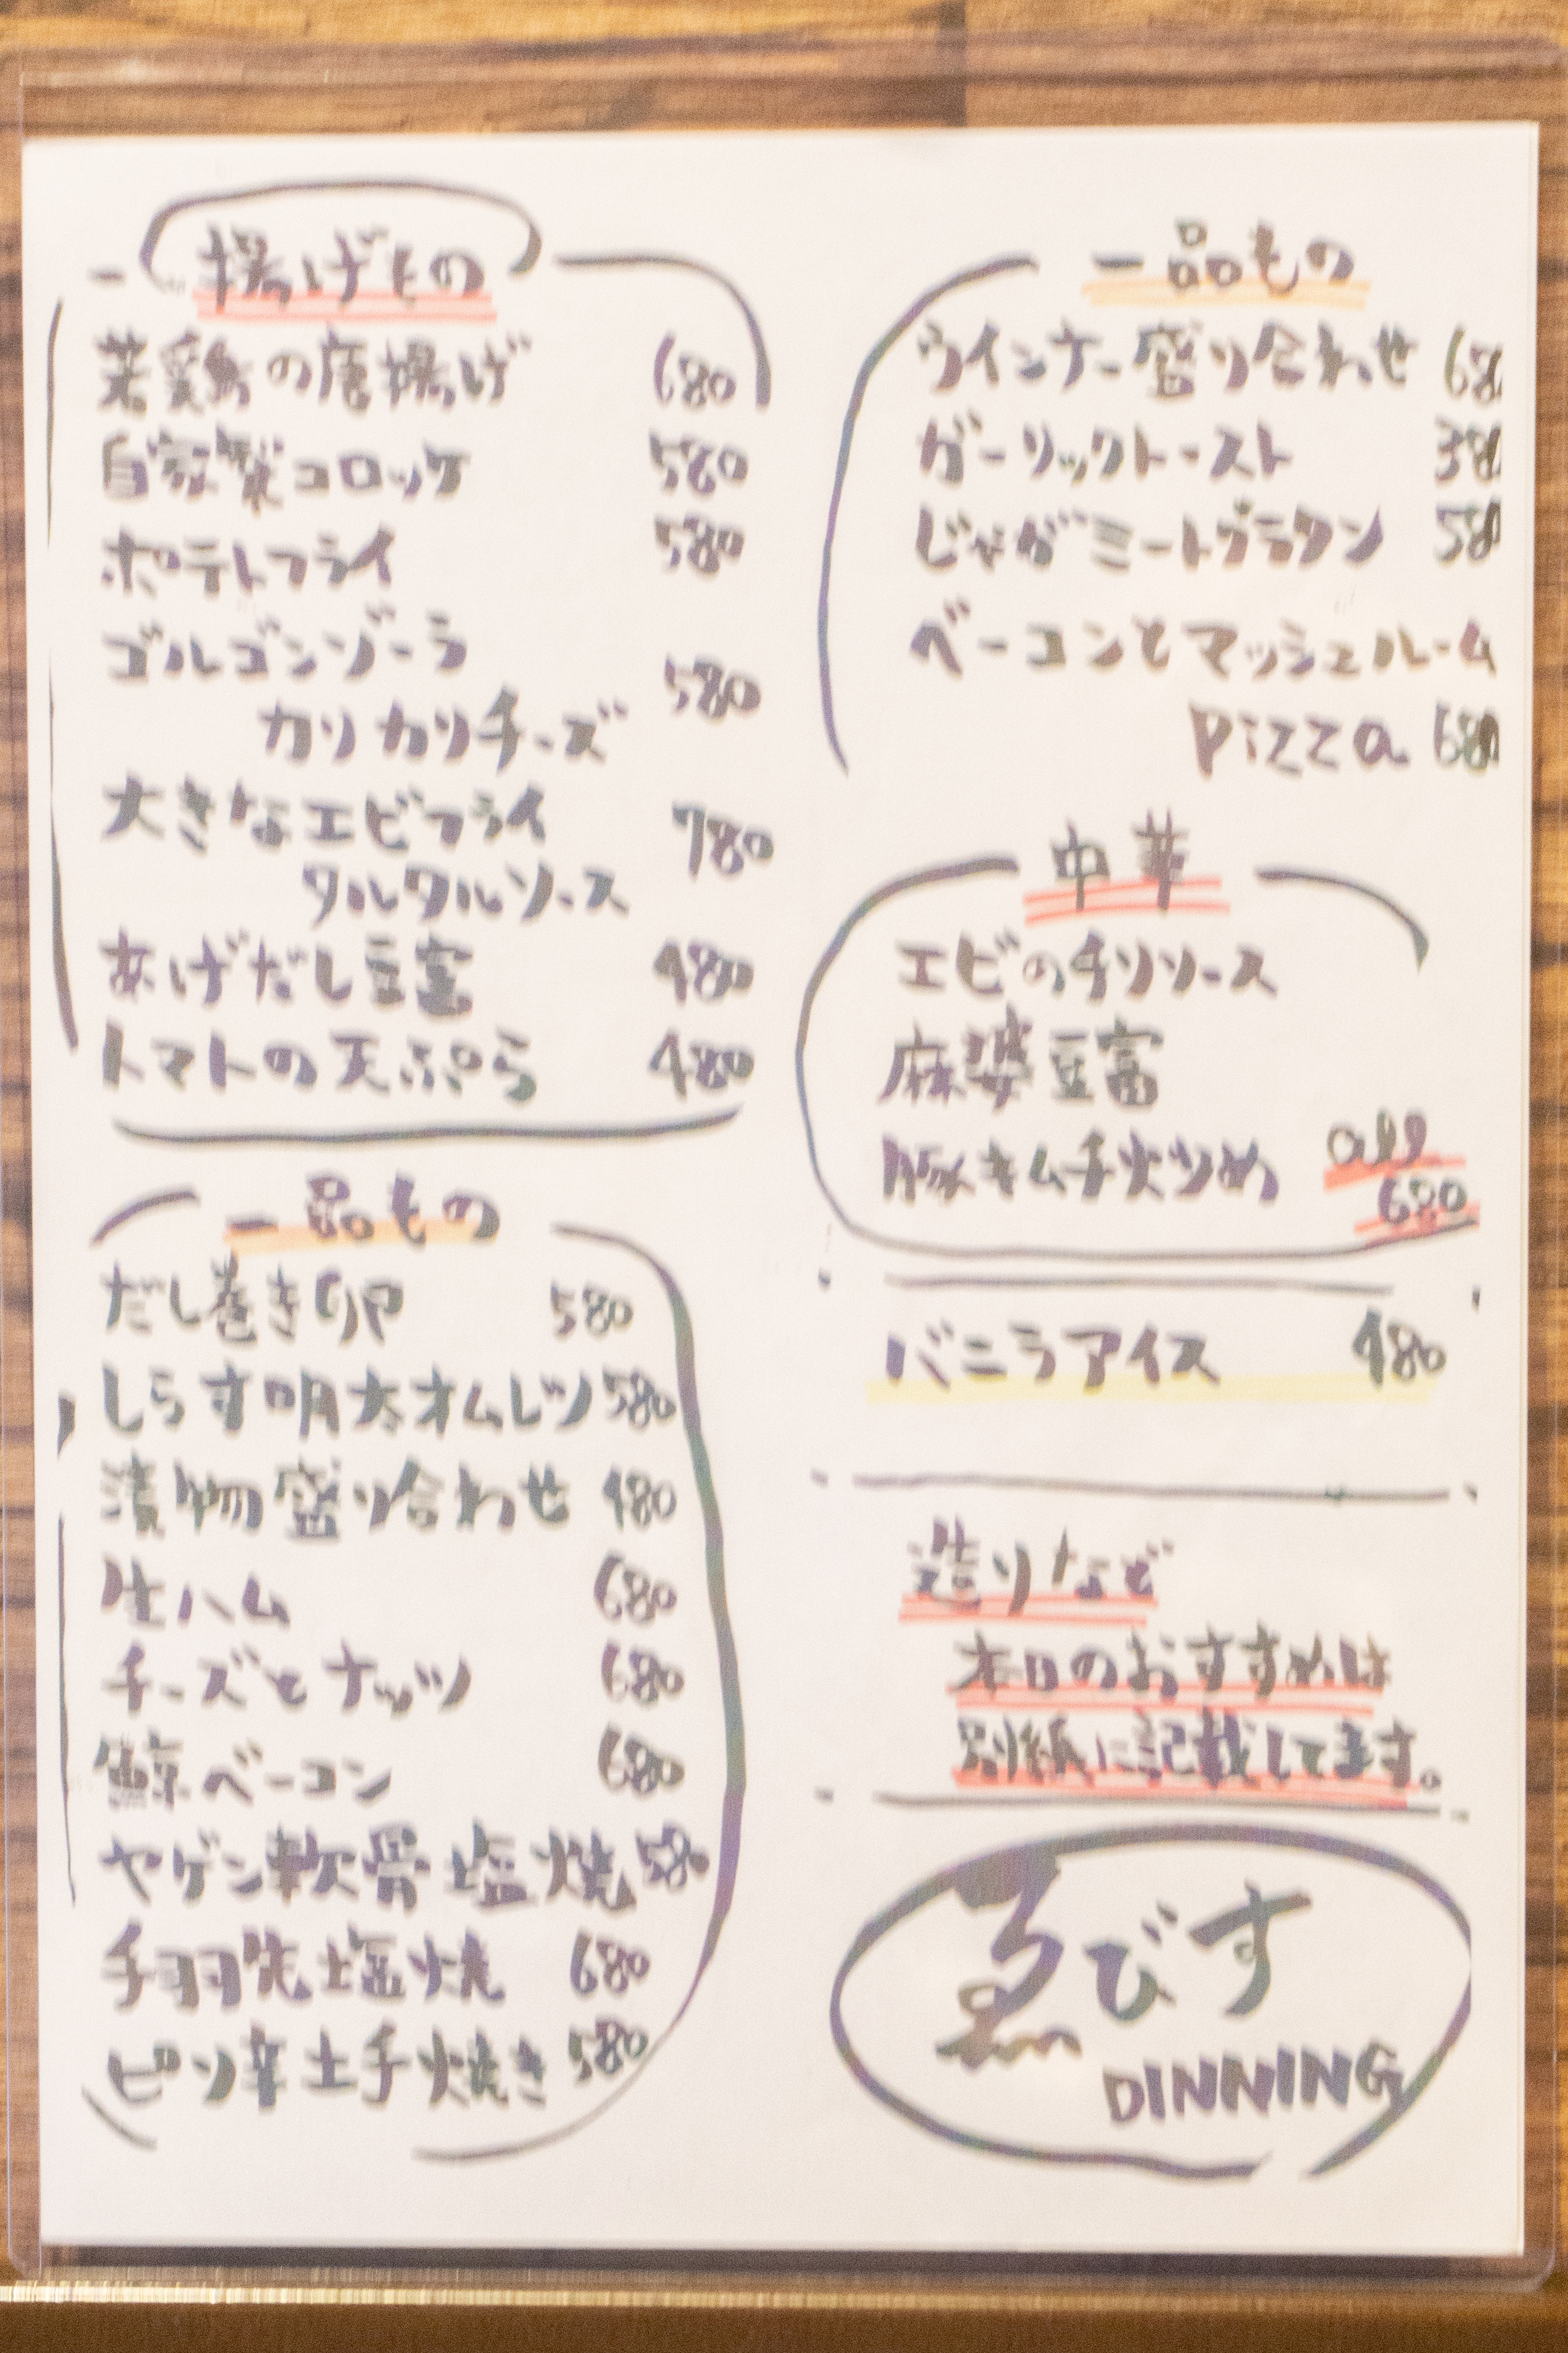 揚げもの
若鶏の唐揚げ 680
自家製コロッケ 580
ポテトフライ 580
ゴルゴンゾーラ
カリカリチーズ 580
大きなエビフライ 780
タルタルソース
あげだし豆富 480
トマトの天ぷら 480
一品もの
だし巻き卵 580
しらす明太オムレツ 580
漬物盛り合わせ 480
生ハム 680
チーズとナッツ 680
鯨ベーコン 680
ヤゲン軟骨塩焼 580
手羽先塩焼 680
ピリ辛土手焼き 580
一品もの
ウインナー盛り合わせ 680
ガーリックトースト 380
じゃがミートグラタン 580
ベーコンとマッシュルーム
Pizza 680
中華
エビのチリソース
麻婆豆富
豚キムチ炒め all
680
バニラアイス 480
造りなど
本日のおすすめは
別紙に記載してます。
ゑびす
DINNING